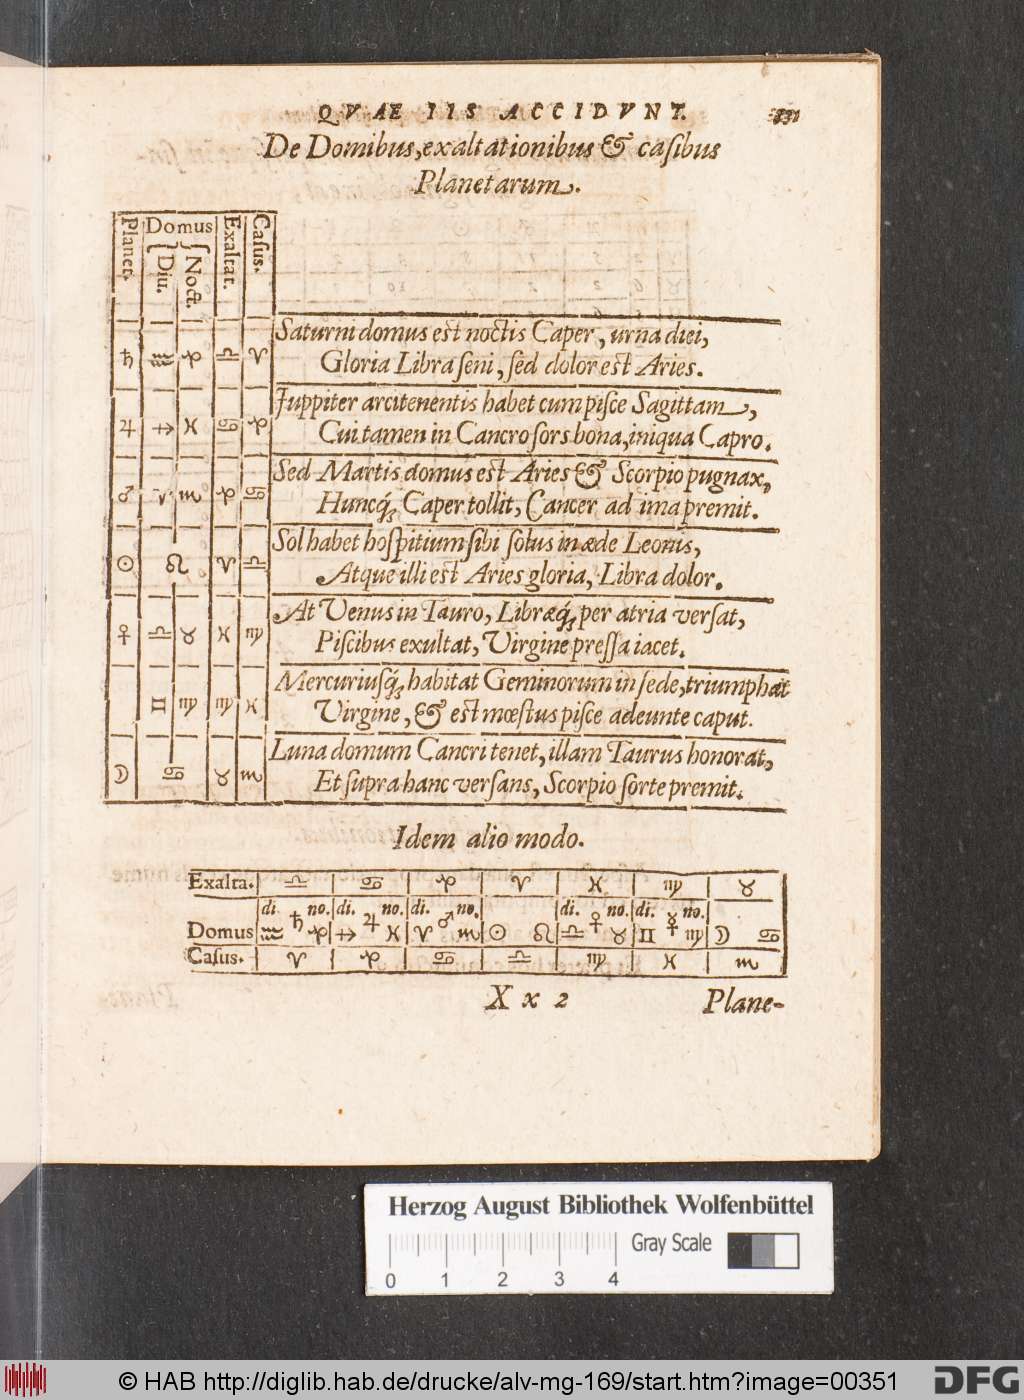 QVAE IIS ACCIDVNT.
De Domibus, exaltationibus & casibus
Planetarum.
Planet. Domus Exaltat. Casus.
Diu. Noct.
Saturni domus est noctis Caper, urna diei,
♄ ♒ ♑ ♎ ♈ Gloria Libra seni, sed dolor est Aries.
Juppiter arcitenentis habet cum pisce Sagittam,
♃ ♐ ♓ ♋ ♑ Cui tamen in Cancro sors bona, iniqua Capro.
Sed Martis domus est Aries & Scorpio pugnax,
♂ ♈ ♏ ♑ ♋ Huncq́; Caper tollit, Cancer ad ima premit.
Sol habet hospitium sibi solus in æde Leonis,
☉ ♌ ♈ ♎ Atque illi est Aries gloria, Libra dolor.
At Venus in Tauro, Libræq́; per atria versat,
♀ ♎ ♉ ♓ ♍ Piscibus exultat, Virgine pressa iacet.
Mercuriusq́; habitat Geminorum in sede, triumphat
♊ ♍ ♍ ♓ Virgine, & est mœstus pisce adeunte caput.
Luna domum Cancri tenet, illam Taurus honorat,
☽ ♋ ♉ ♏ Et supra hanc versans, Scorpio sorte premit.
Idem alio modo.
Exalta. ♎ ♋ ♑ ♈ ♓ ♍ ♉
di. ♄ no. di. ♃ no. di. ♂ no. di. ♀ no. di. ☿ no.
Domus ♒ ♑ ♐ ♓ ♈ ♏ ☉ ♌ ♎ ♉ ♊ ♍ ☽ ♋
Casus. ♈ ♑ ♋ ♎ ♍ ♓ ♏
X x 2 Plane-
Herzog August Bibliothek Wolfenbüttel
Gray Scale
0 1 2 3 4
© HAB http://diglib.hab.de/drucke/alv-mg-169/start.htm?image=00351
DFG